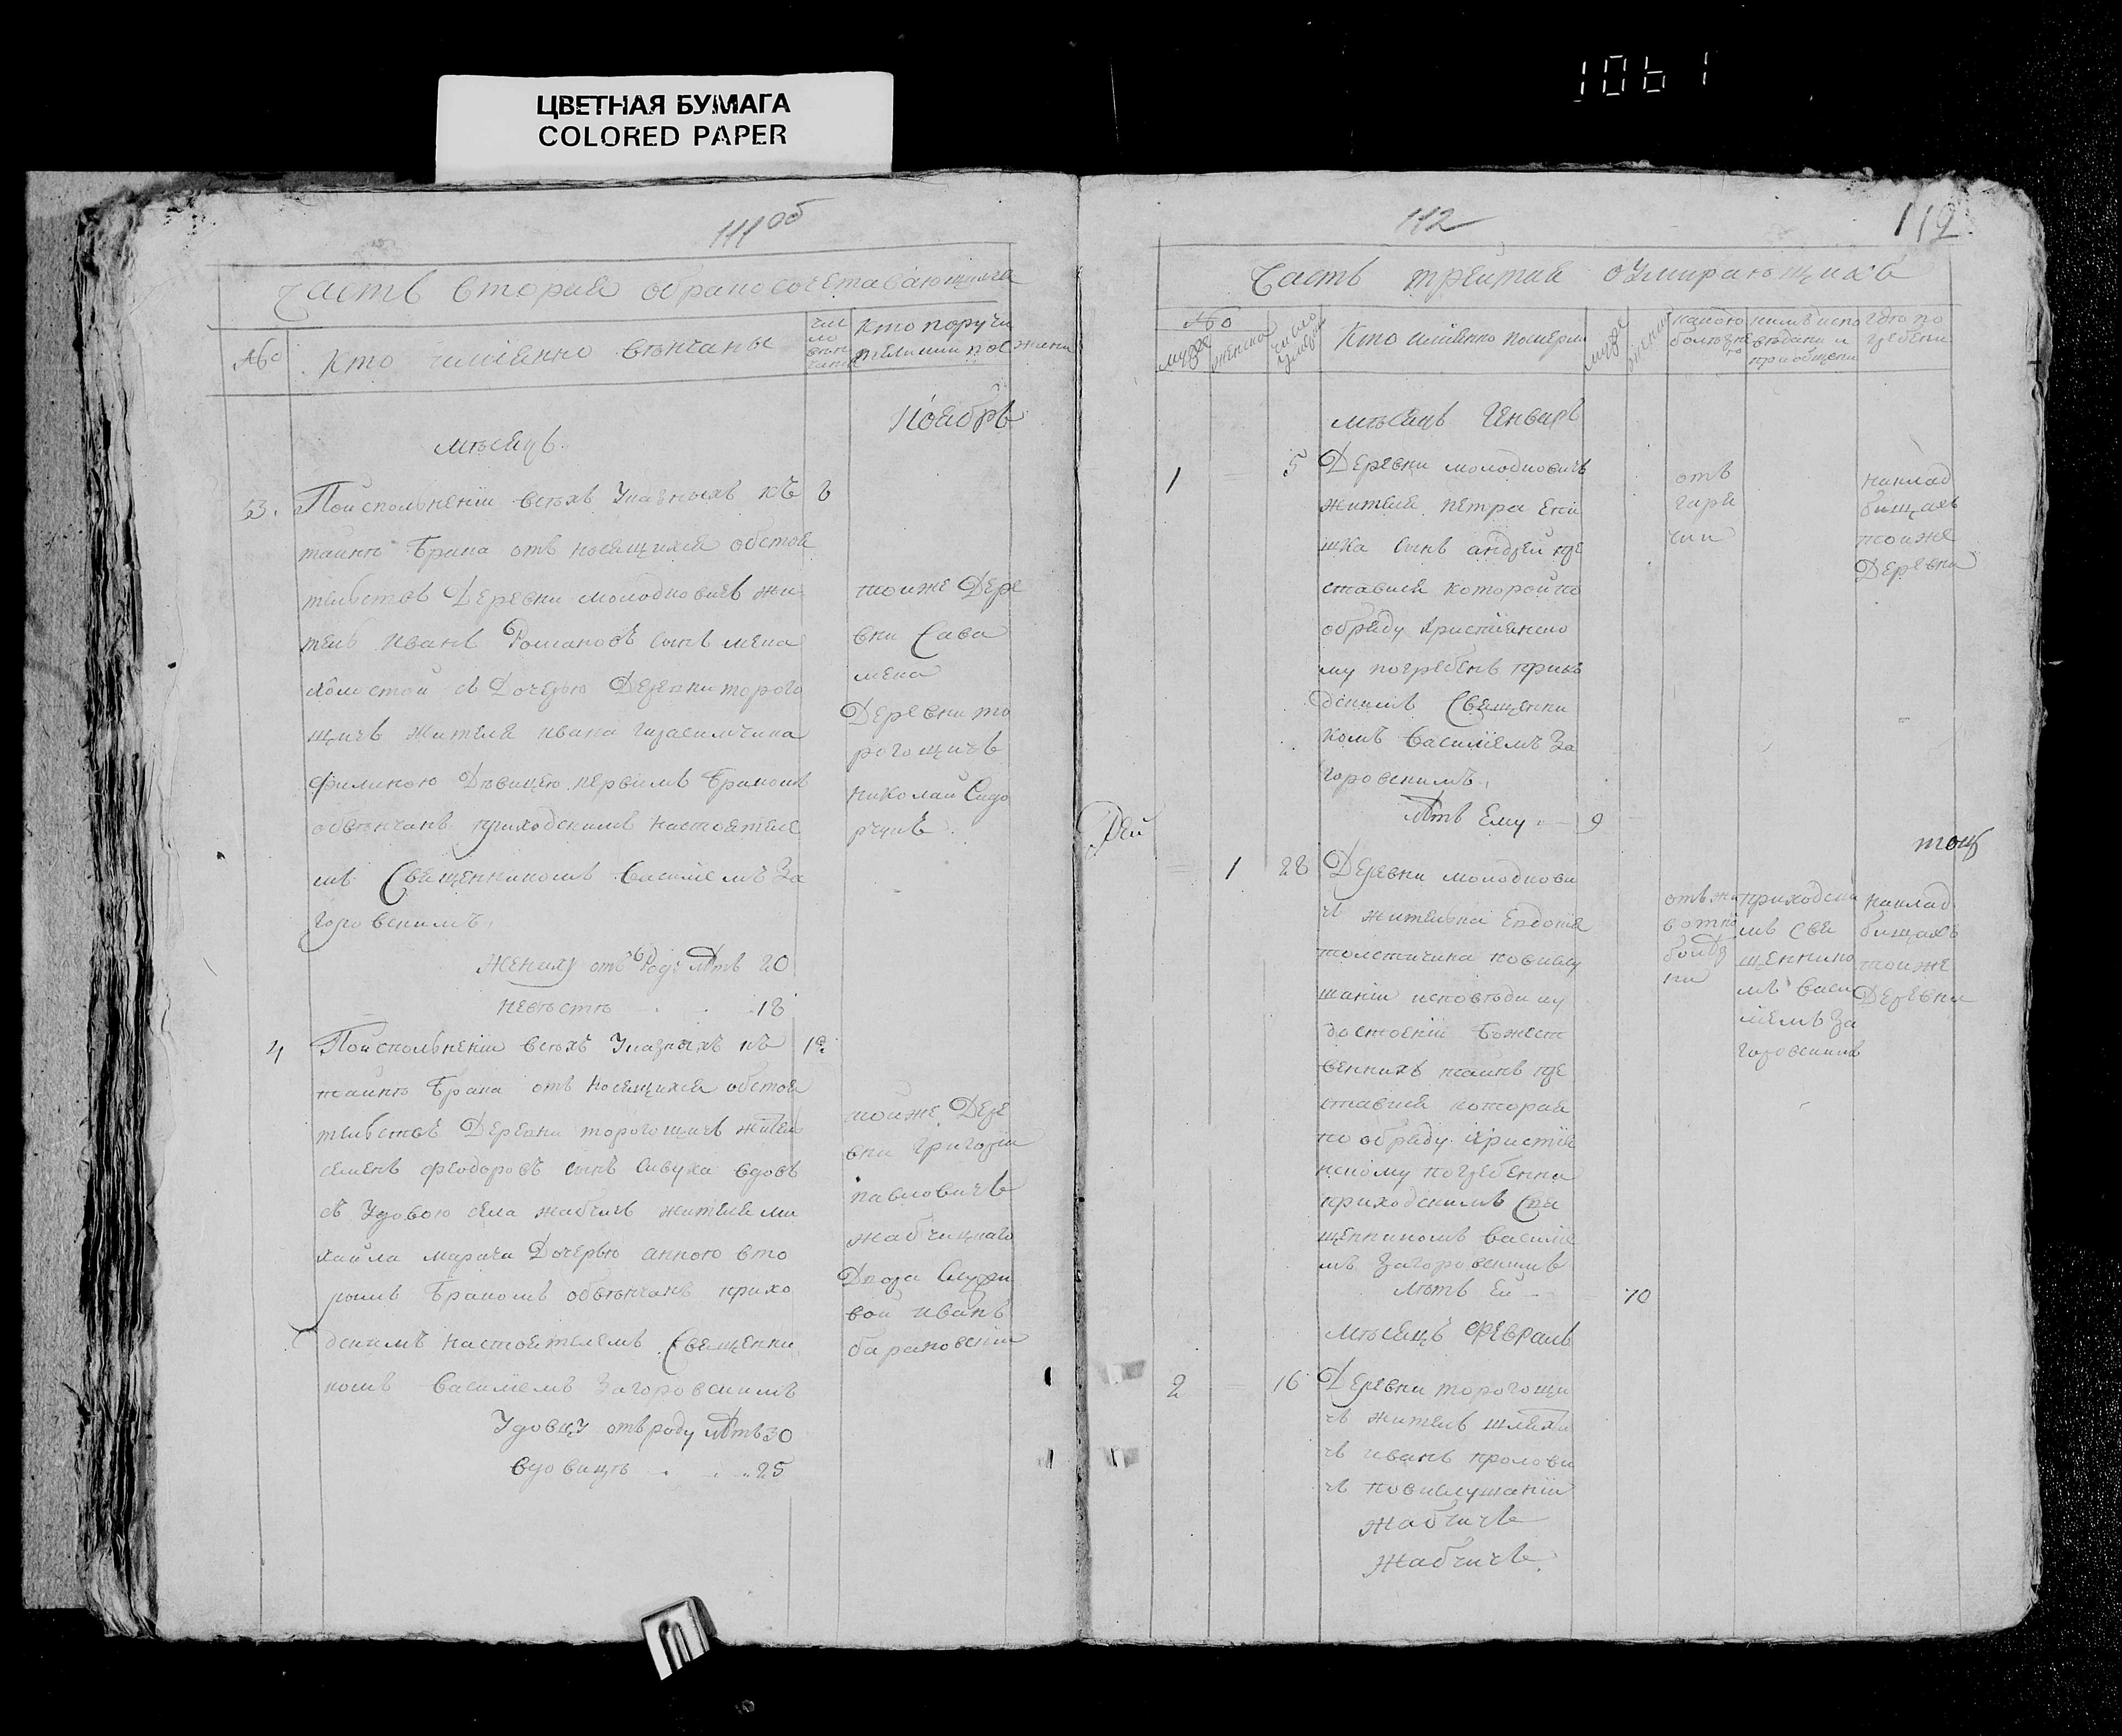 ЦВЕТНАЯ БУМАГА
COLORED PAPER
1061
111 об
Часть вторая обракосочетавающихся
№о
Кто имiянно вѣнчаны
чис
ло
вѣн
чания
Кто поручи
тели
Ноябрь
мѣсяцъ
33.
Поисполненiи всѣхъ Указныхъ къ
8
тайнѣ брака относящихся обстоя
тельствъ Деревни молодковичъ жи
тель Иванъ Романовъ сынъ мена
холостой съ Дочерью Деревни торого
щичъ жителя ивана
Дѣвицею первымъ бракомъ
обвѣнчанъ приходскимъ настоятеле
мъ Священникомъ Василiемъ За
горовскимъ
Жениху отъ Роду лѣтъ 20
невѣстѣ - . . 18
тоиже Дере
вни Сава
мена
Деревни то
рогощичъ
николай Сидо
рчукъ
4
Поисполненiи всѣхъ Указныхъ къ
тайнѣ брака относящихся обстоя
тельствъ Деревни торогощичъ житель
семенъ феодоровъ сынъ Сивуха вдовъ
съ Удовою села жабчичъ жителя ми
хайла марача Дочерью анною вто
рымъ бракомъ обвѣнчанъ прихо
дскимъ настоятелемъ Священни
комъ Василiемъ Загоровскимъ
Удовцу отъ роду лѣтъ 30
вдовицѣ - . . 25
тоиже Дере
вни григорiи
павловичъ
жабчицкаго
Двора Служи
вой иванъ
барановскiи
112
112
Часть третия оумирающихъ
№о
мужес
женска
число
умерш
Кто имянно померли
муже
женск
какою
болѣзнею
кимъ испо
вѣданы и
приобщены
гдѣ по
гребены
мѣсяцъ Генварь
1
5
Деревни молодковичъ
жителя петра
сынъ андрей пре
ставися которой по
обряду християнско
му погребенъ прихо
дскимъ Священни
комъ Василiемъ За
горовскимъ
лѣтъ Ему - 9
отъ
горя
чки
наклад
бищахъ
тоиже
Деревни
1
28
Деревни молодкови
чъ жителька Евдокия
толстичина повислу
шанiи исповѣди иу
достоенiи Божест
венныхъ тайнъ пре
ставися которая
по обряду христия
нскому погребенна
приходскимъ Свя
щенникомъ василiе
мъ Загоровскимъ
лѣтъ Ей - 70
приходски
мъ Свя
щеннико
мъ васи
лiемъ За
горовскимъ
наклад
бищахъ
тоиже
Деревни
мѣсяцъ Февраль
2
16
Деревни торогощи
чъ житель шляхти
чъ иванъ
чъ повислушанiи
жабчичъ
жабчичъ